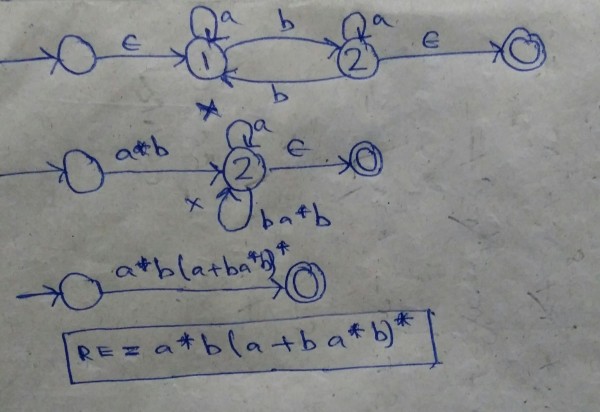 a b a
∈ 1 2 ∈
b
a
a*b 2 ∈
ba*b
a*b(a+ba*b)*
RE = a*b(a+ba*b)*